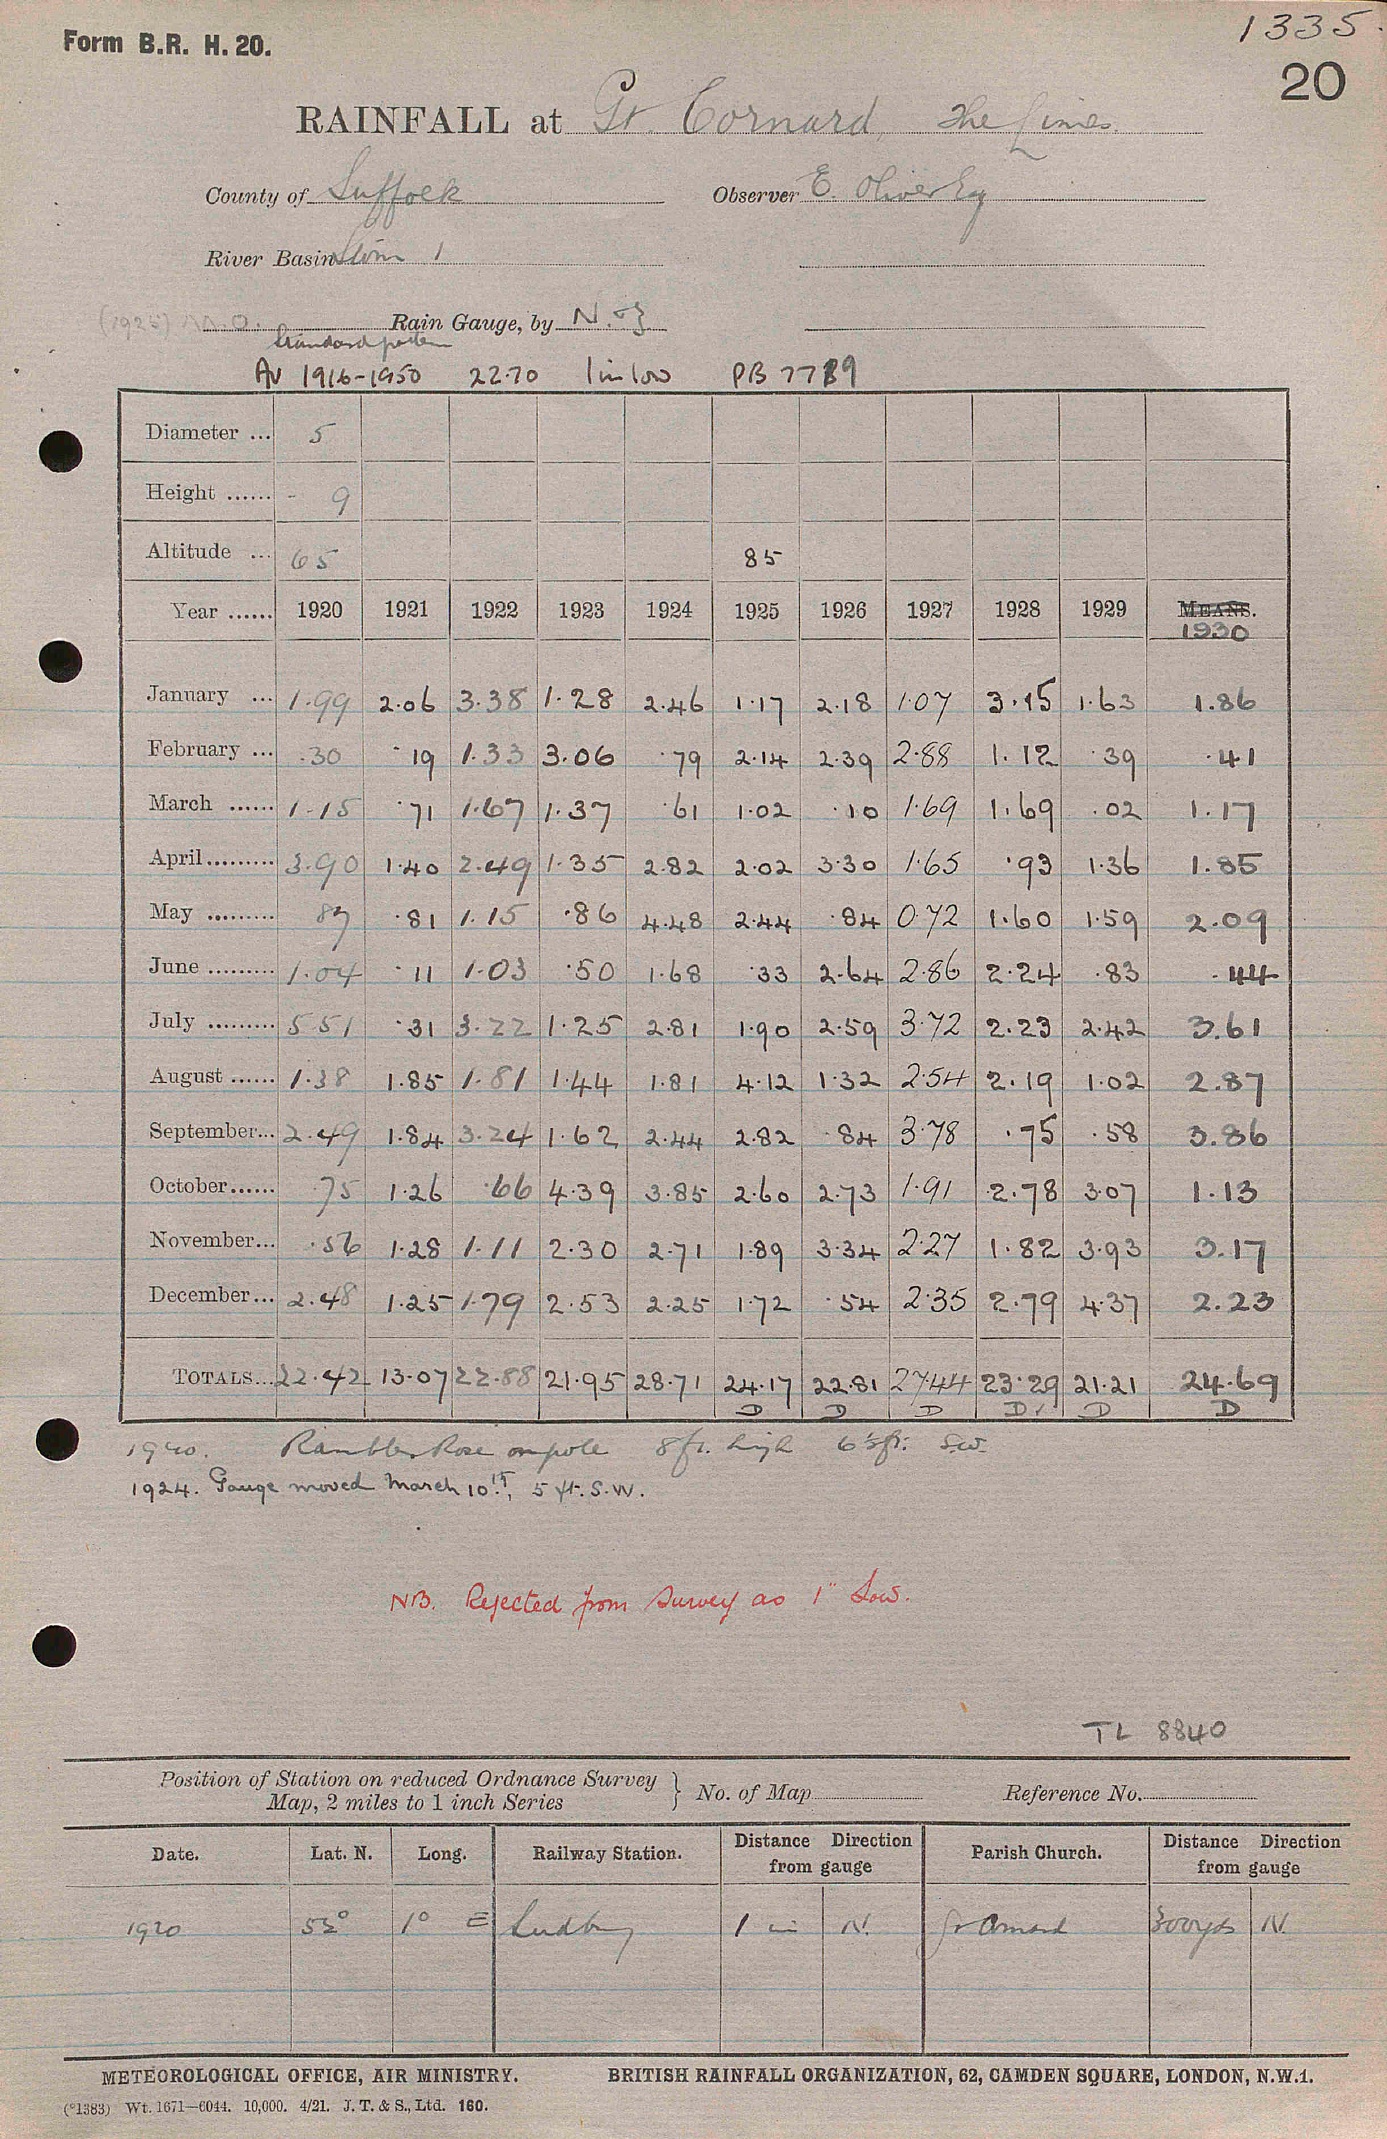 1335.
Form B.R. H. 20.
20
RAINFALL at Gt. Cornard, The Limes.
County of Suffolk Observer E. Oliver Esq
River Basin Stour 1
(1925) M.O. Rain Gauge, by N. & Z
Standard pattern
Av 1916-1950 22.70 1 in low PB 7789
Diameter ... 5
Height ...... - 9
Altitude ... 65 85
Year ...... 1920 1921 1922 1923 1924 1925 1926 1927 1928 1929 MEANS.
1930
January ... 1.99 2.06 3.38 1.28 2.46 1.17 2.18 1.07 3.15 1.63 1.86
February ... .30 .19 1.33 3.06 .79 2.14 2.39 2.88 1.12 .39 .41
March ...... 1.15 .71 1.67 1.37 .61 1.02 .10 1.69 1.69 .02 1.17
April......... 3.90 1.40 2.49 1.35 2.82 2.02 3.30 1.65 .93 1.36 1.85
May ......... 87 .81 1.15 .86 4.48 2.44 .84 0.72 1.60 1.59 2.09
June ......... 1.04 .11 1.03 .50 1.68 .33 2.64 2.86 2.24 .83 .44
July ......... 5.51 .31 3.22 1.25 2.81 1.90 2.59 3.72 2.23 2.42 3.61
August ...... 1.38 1.85 1.81 1.44 1.81 4.12 1.32 2.54 2.19 1.02 2.87
September... 2.49 1.84 3.24 1.62 2.44 2.82 .84 3.78 .75 .58 3.86
October...... .75 1.26 .66 4.39 3.85 2.60 2.73 1.91 2.78 3.07 1.13
November... .56 1.28 1.11 2.30 2.71 1.89 3.34 2.27 1.82 3.93 3.17
December... 2.48 1.25 1.79 2.53 2.25 1.72 .54 2.35 2.79 4.37 2.23
TOTALS... 22.42 13.07 22.88 21.95 28.71 24.17 22.81 27.44 23.29 21.21 24.69
D D D D D D
1920. Rambler Rose on pole 8 ft. high 6½ ft. S.W.
1924. Gauge moved March 10th, 5 ft. S.W.
NB. Rejected from Survey as 1" Low.
TL 8840
Position of Station on reduced Ordnance Survey Map, 2 miles to 1 inch Series } No. of Map Reference No.
Date. Lat. N. Long. Railway Station. Distance Direction from gauge Parish Church. Distance Direction from gauge
1920 52° 1° E Sudbury 1 m N. Gt Cornard 300 yds N.
METEOROLOGICAL OFFICE, AIR MINISTRY. BRITISH RAINFALL ORGANIZATION, 62, CAMDEN SQUARE, LONDON, N.W.1.
(*1383) Wt. 1671—6044. 10,000. 4/21. J. T. & S., Ltd. 160.